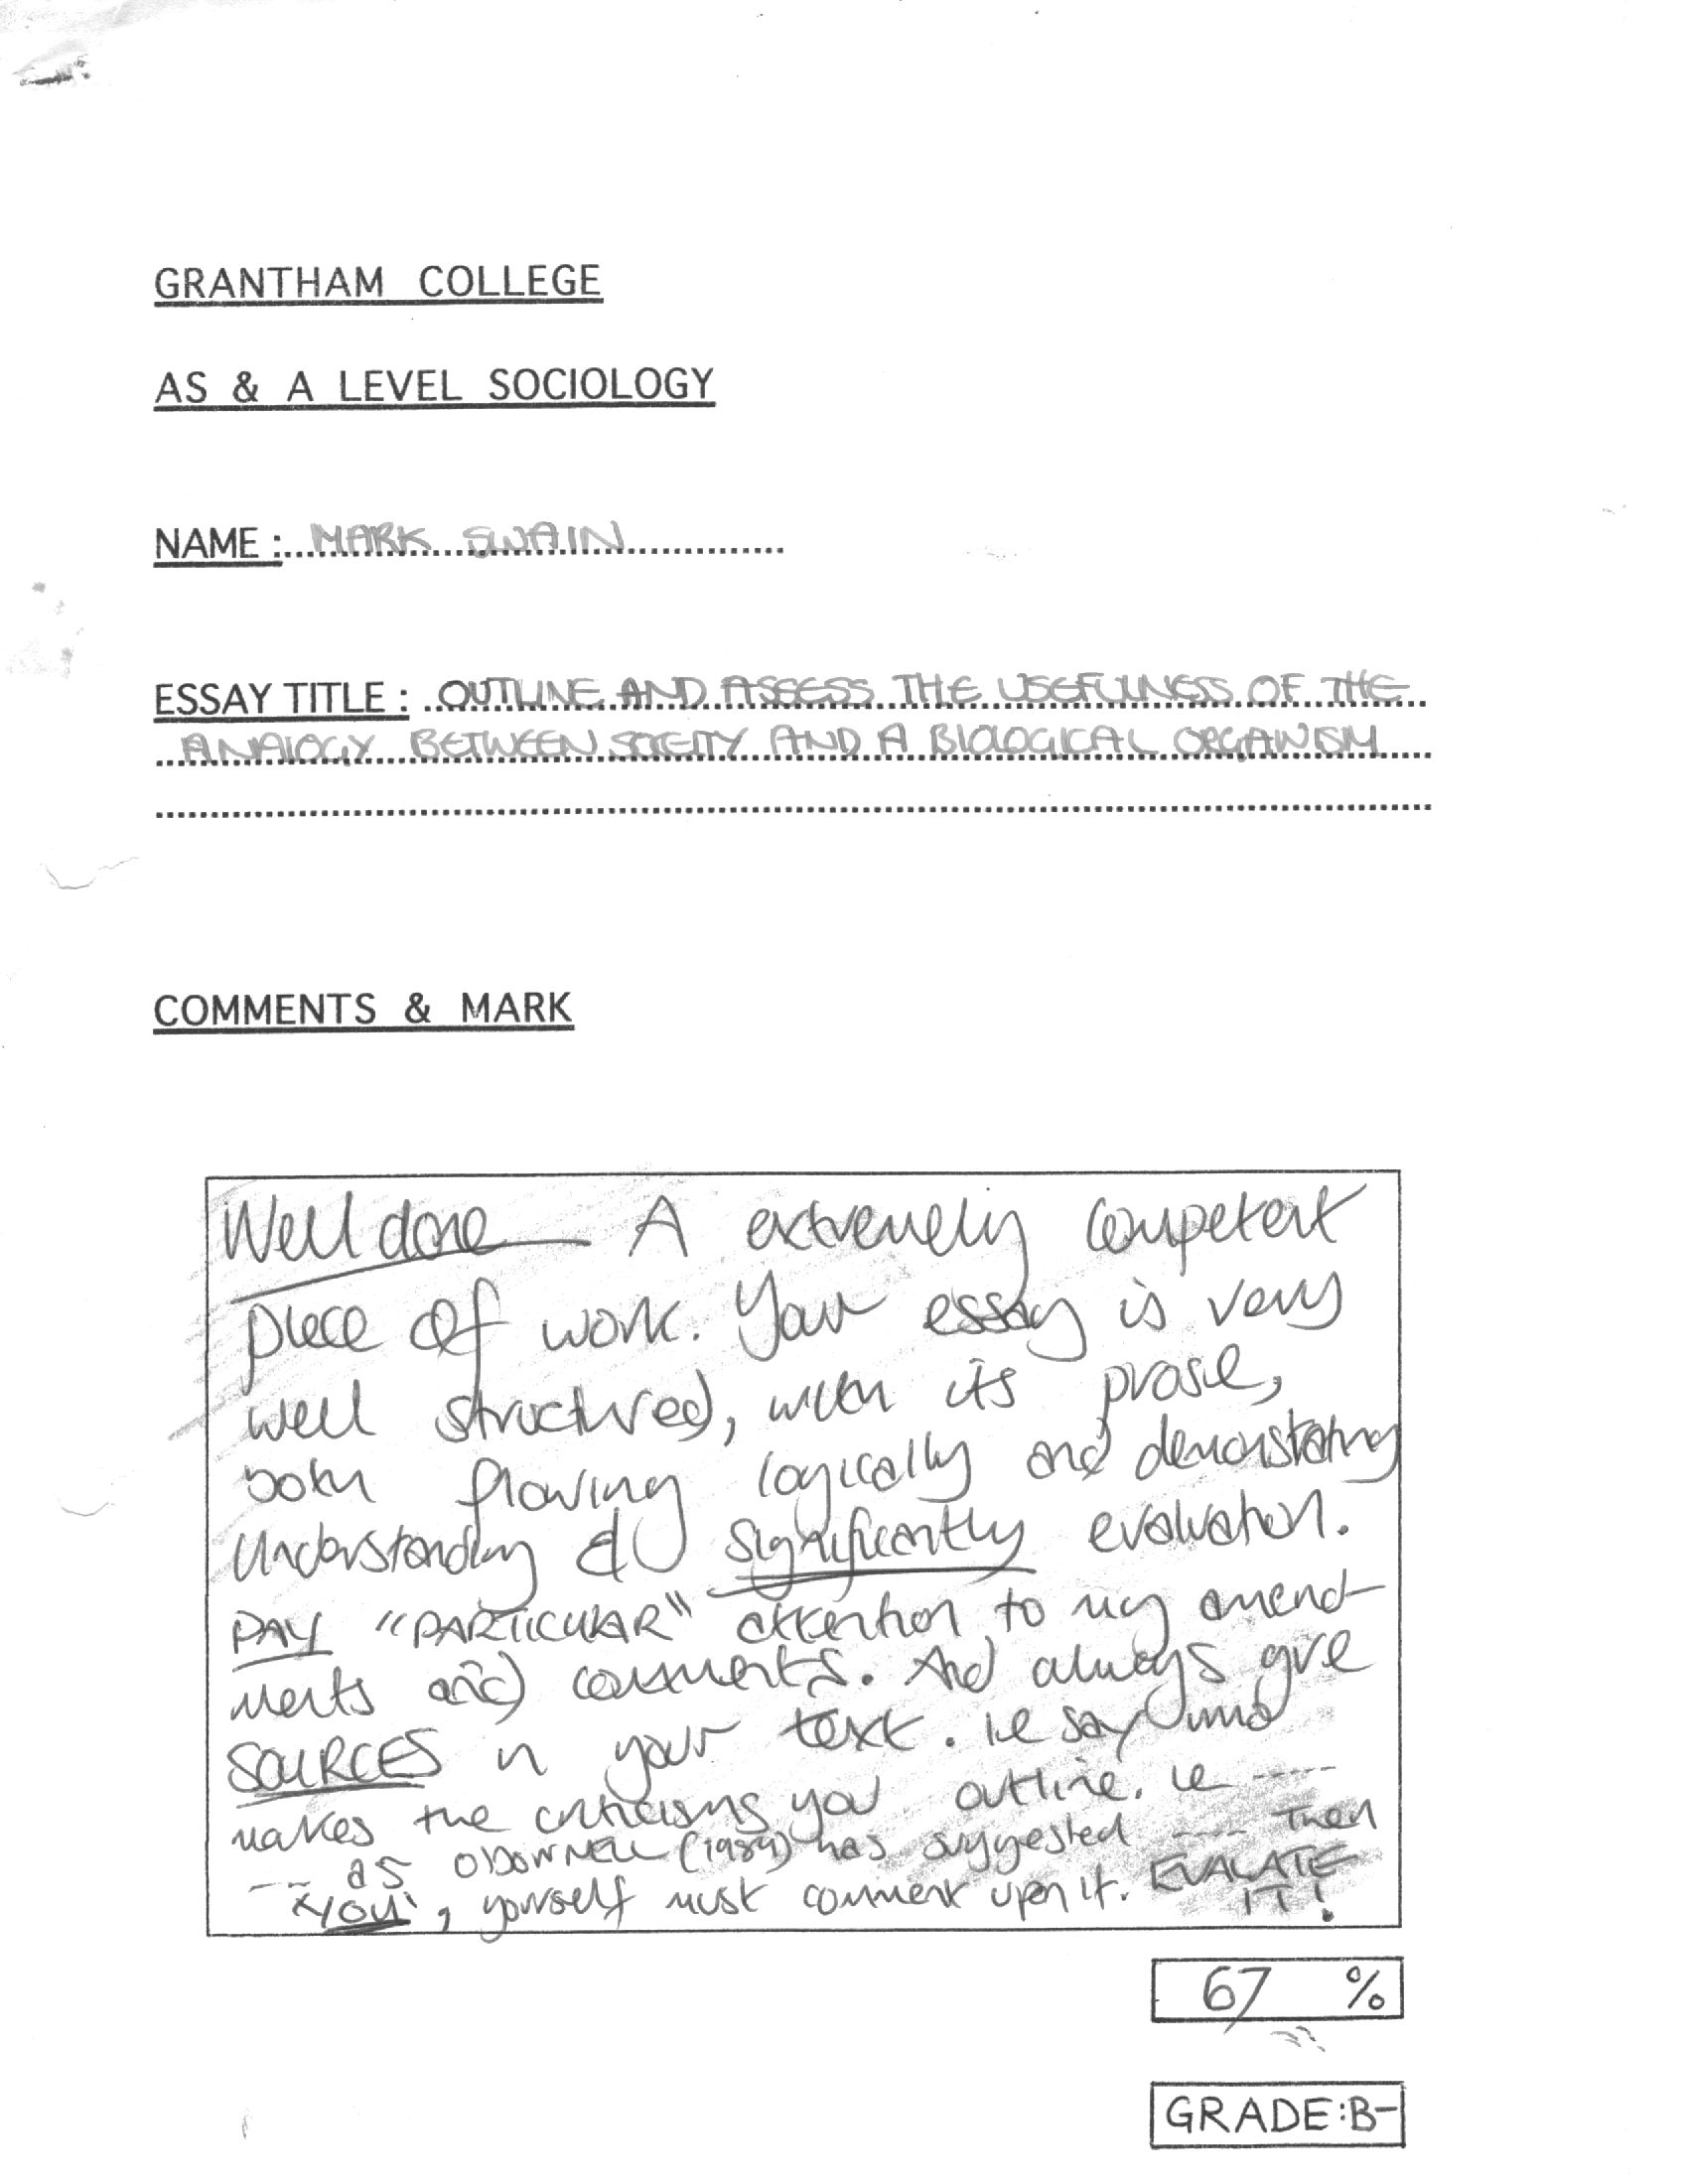 GRANTHAM COLLEGE
AS & A LEVEL SOCIOLOGY
NAME : MARK SWAIN
ESSAY TITLE : OUTLINE AND ASSESS THE USEFULNESS OF THE
ANALOGY BETWEEN SOCEITY AND A BIOLOGICAL ORGANISM
COMMENTS & MARK
Well done A extremely competent
piece of work. Your essay is very
well structured, with its prose,
both flowing logically and demonstating
understanding & significantly evaluation.
PAY "PARTICULAR" attention to my amend-
ments and comments. And always give
SOURCES in your text. ie say who
makes the criticisms you outline. ie -----
--- as O'DONNELL (1989) has suggested ---- Then
'YOU', yourself must comment upon it. EVALATE
IT!
67 %
GRADE:B-